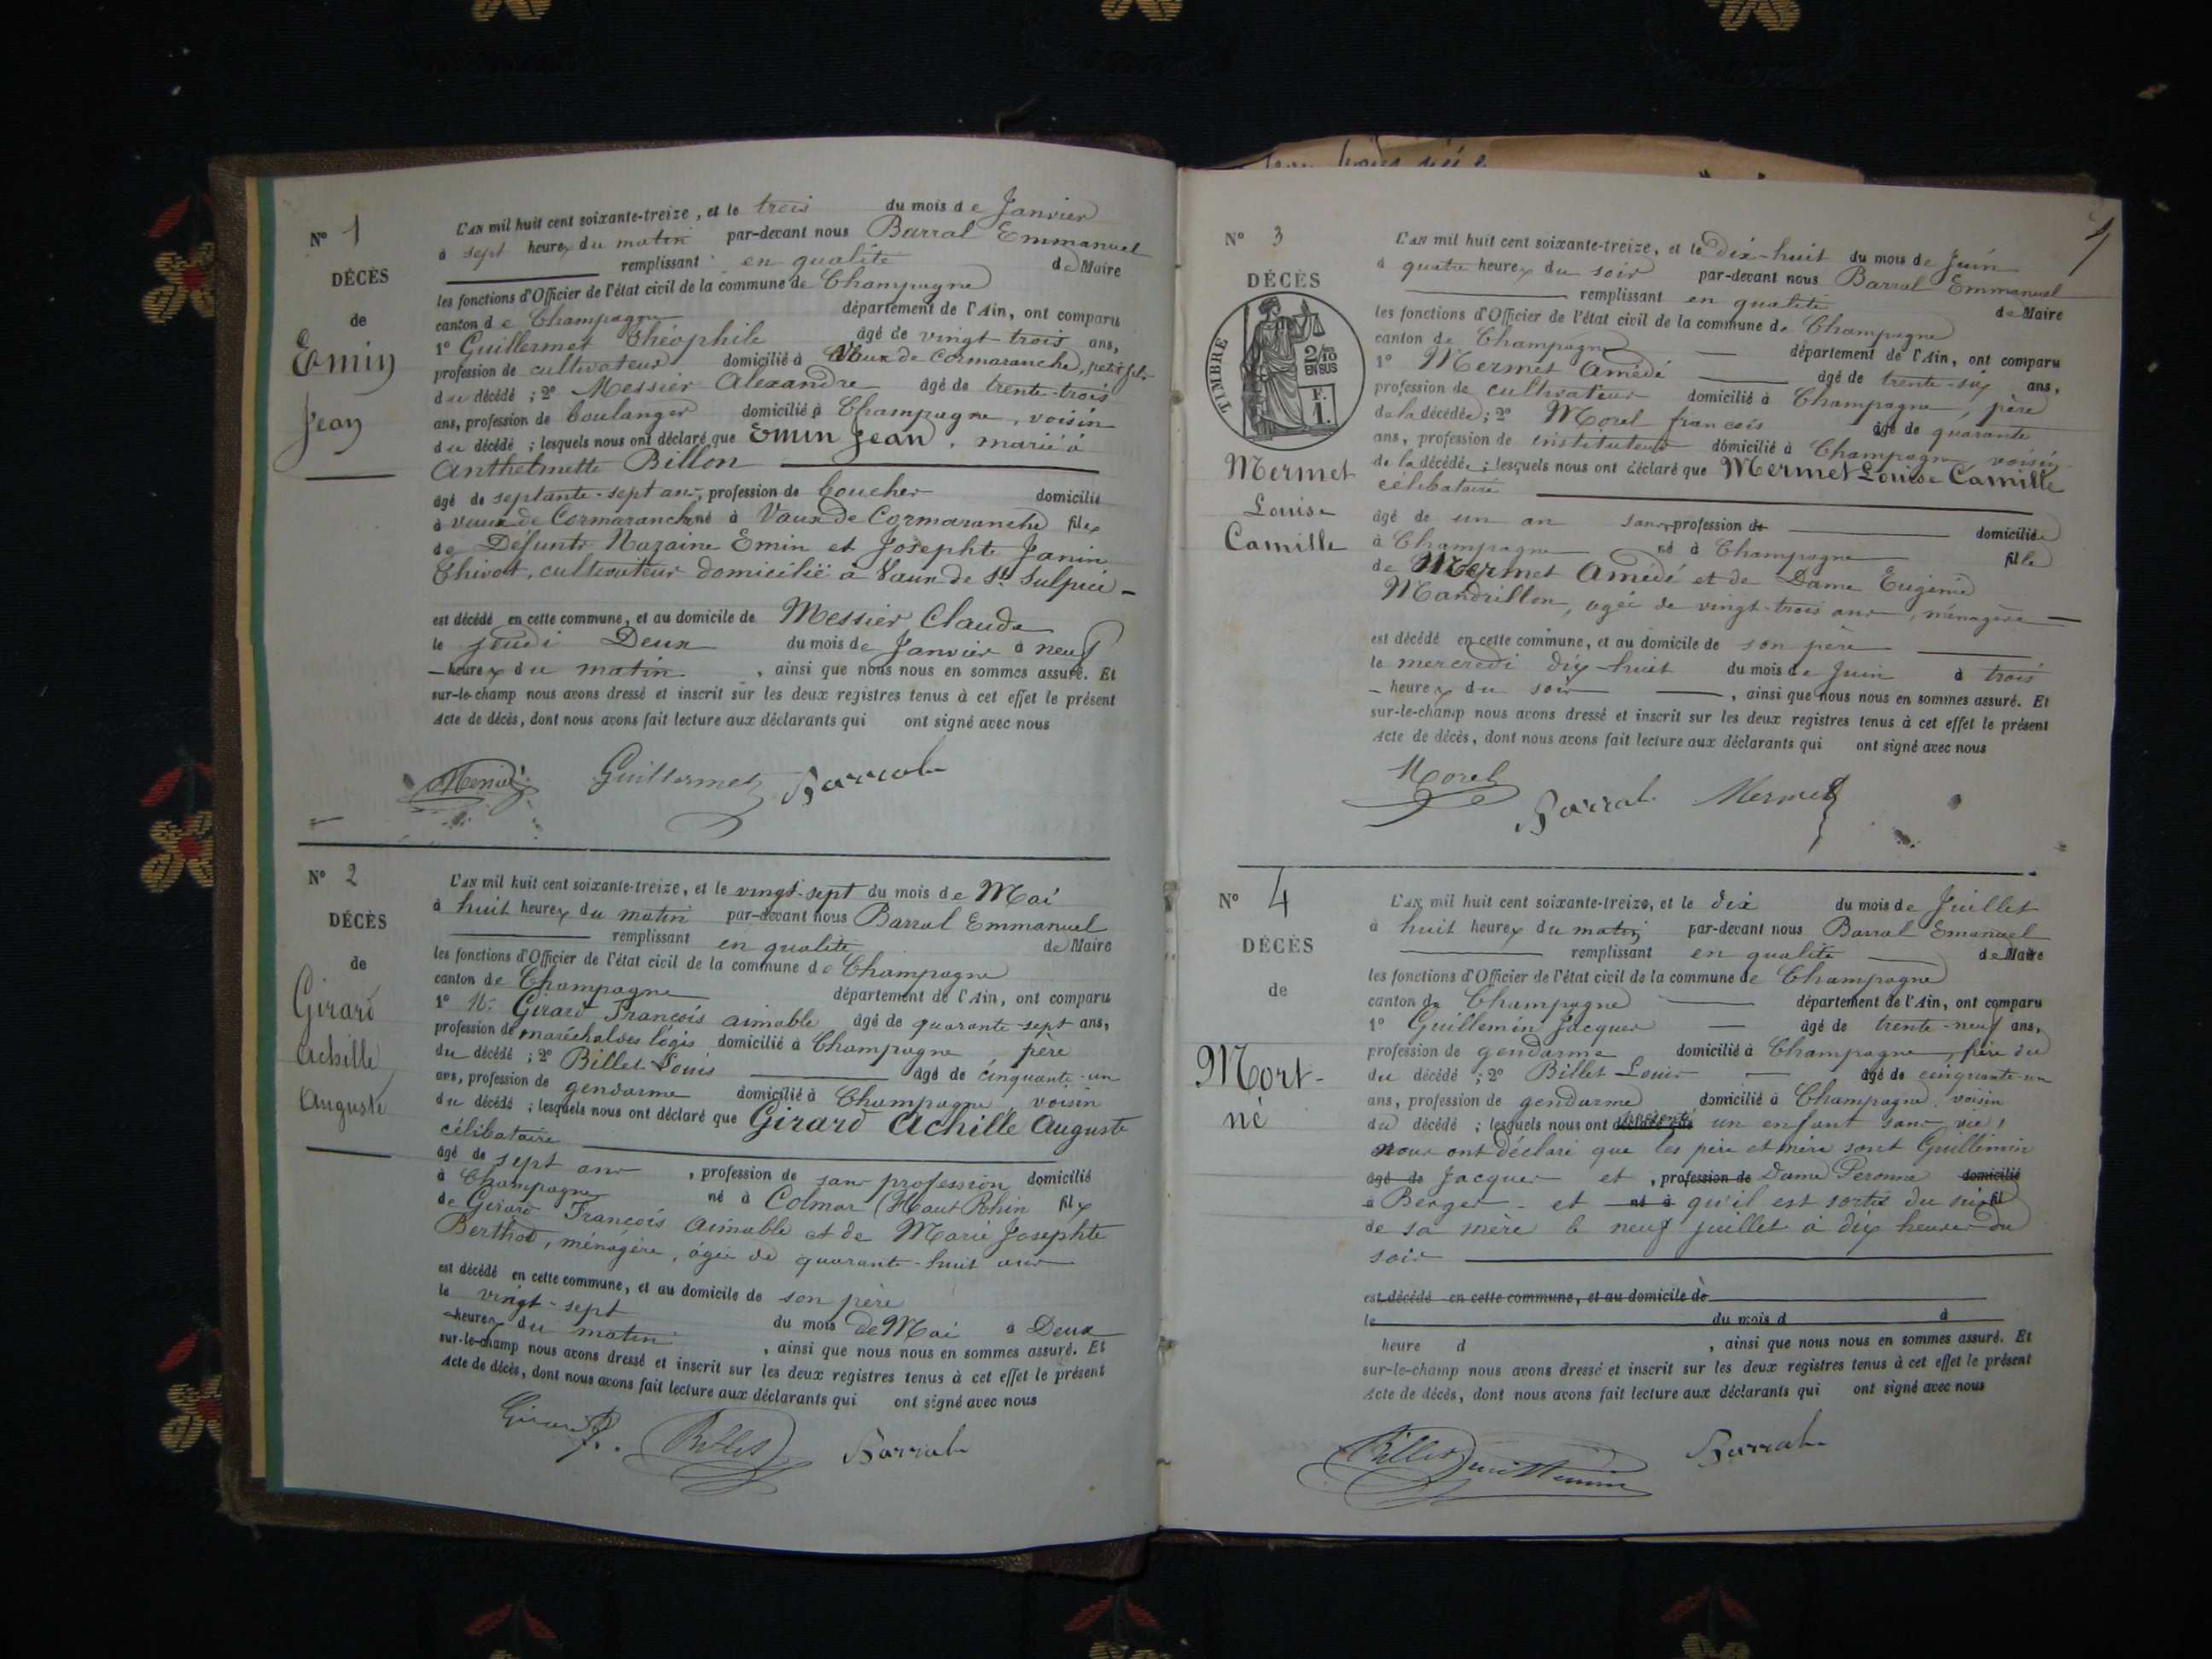 N° 1
DÉCÈS
de
Emin
Jean
L'AN mil huit cent soixante-treize, et le trois du mois de Janvier
à sept heures du matin par-devant nous Barral Emmanuel
remplissant en qualité de Maire
les fonctions d'Officier de l'état civil de la commune de Champagne
canton de Champagne département de l'Ain, ont comparu
1° Guillermet Théophile âgé de vingt trois ans,
profession de cultivateur domicilié à Vaux de Cormaranche, petit fils
du décédé ; 2° Messier Alexandre âgé de trente-trois
ans, profession de boulanger domicilié à Champagne, voisin
du décédé ; lesquels nous ont déclaré que Emin Jean, marié à
Anthelmette Billon
âgé de septante-sept ans, profession de boucher domicilié
à Vaux de Cormaranche né à Vaux de Cormaranche fils
de Défunts Nazaire Emin et Josephte Janin
Thivot, cultivateur domicilié à Vaux de St Sulpice
est décédé en cette commune, et au domicile de Messier Claude
le jeudi Deux du mois de Janvier à neuf
heures du matin, ainsi que nous nous en sommes assuré. Et
sur-le-champ nous avons dressé et inscrit sur les deux registres tenus à cet effet le présent
Acte de décès, dont nous avons fait lecture aux déclarants qui ont signé avec nous
Guillermet Barral
N° 2
DÉCÈS
de
Girard
Achille
Auguste
L'AN mil huit cent soixante-treize, et le vingt-sept du mois de Mai
à huit heures du matin par-devant nous Barral Emmanuel
remplissant en qualité de Maire
les fonctions d'Officier de l'état civil de la commune de Champagne
canton de Champagne département de l'Ain, ont comparu
1° Mr Girard François aimable âgé de quarante-sept ans,
profession de maréchal des logis domicilié à Champagne, père
du décédé ; 2° Billet Louis âgé de cinquante-un
ans, profession de gendarme domicilié à Champagne, voisin
du décédé ; lesquels nous ont déclaré que Girard Achille Auguste
célibataire
âgé de sept ans, profession de sans profession domicilié
à Champagne né à Colmar (Haut Rhin fils
de Girard François Aimable et de Marie Josephte
Berthod, ménagère, âgée de quarante-huit ans
est décédé en cette commune, et au domicile de son père
le vingt-sept du mois de Mai à Deux
heures du matin, ainsi que nous nous en sommes assuré. Et
sur-le-champ nous avons dressé et inscrit sur les deux registres tenus à cet effet le présent
Acte de décès, dont nous avons fait lecture aux déclarants qui ont signé avec nous
Girard Billet Barral
N° 3
DÉCÈS
TIMBRE
2/10
EN SUS
F.
1.
Mermet
Louise
Camille
L'AN mil huit cent soixante-treize, et le Dix-huit du mois de Juin
à quatre heures du soir par-devant nous Barral Emmanuel
remplissant en qualité de Maire
les fonctions d'Officier de l'état civil de la commune de Champagne
canton de Champagne département de l'Ain, ont comparu
1° Mermet Amédé âgé de trente-six ans,
profession de cultivateur domicilié à Champagne, père
de la décédée ; 2° Morel françois âgé de quarante
ans, profession de instituteur domicilié à Champagne, voisin
de la décédée ; lesquels nous ont déclaré que Mermet Louise Camille
célibataire
âgé de un an sans profession de domiciliée
à Champagne né à Champagne fille
de Mermet Amédé et de Dame Eugénie
Mandrillon, agée de vingt-trois ans, ménagère
est décédé en cette commune, et au domicile de son père
le mercredi dix-huit du mois de Juin à trois
heures du soir, ainsi que nous nous en sommes assuré. Et
sur-le-champ nous avons dressé et inscrit sur les deux registres tenus à cet effet le présent
Acte de décès, dont nous avons fait lecture aux déclarants qui ont signé avec nous
Morel Barral Mermet
N° 4
DÉCÈS
de
Mort-
né
L'AN mil huit cent soixante-treize, et le dix du mois de Juillet
à huit heures du matin par-devant nous Barral Emanuel
remplissant en qualité de Maire
les fonctions d'Officier de l'état civil de la commune de Champagne
canton de Champagne département de l'Ain, ont comparu
1° Guillemin Jacques âgé de trente-neuf ans,
profession de gendarme domicilié à Champagne, père du
du décédé ; 2° Billet Louis âgé de cinquante-un
ans, profession de gendarme domicilié à Champagne, voisin
du décédé ; lesquels nous ont déclaré que présenté un enfant sans vie,
nous ont déclaré que les père et mère sont Guillimin
âgé de Jacques et, profession de Dame Peronne domicilié
à Berger - et né à qu'il est sortis du sein fil
de sa mère le neuf juillet à dix heures du
soir
est décédé en cette commune, et au domicile de
le du mois d à
heure d, ainsi que nous nous en sommes assuré. Et
sur-le-champ nous avons dressé et inscrit sur les deux registres tenus à cet effet le présent
Acte de décès, dont nous avons fait lecture aux déclarants qui ont signé avec nous
Billet Guillemin Barral